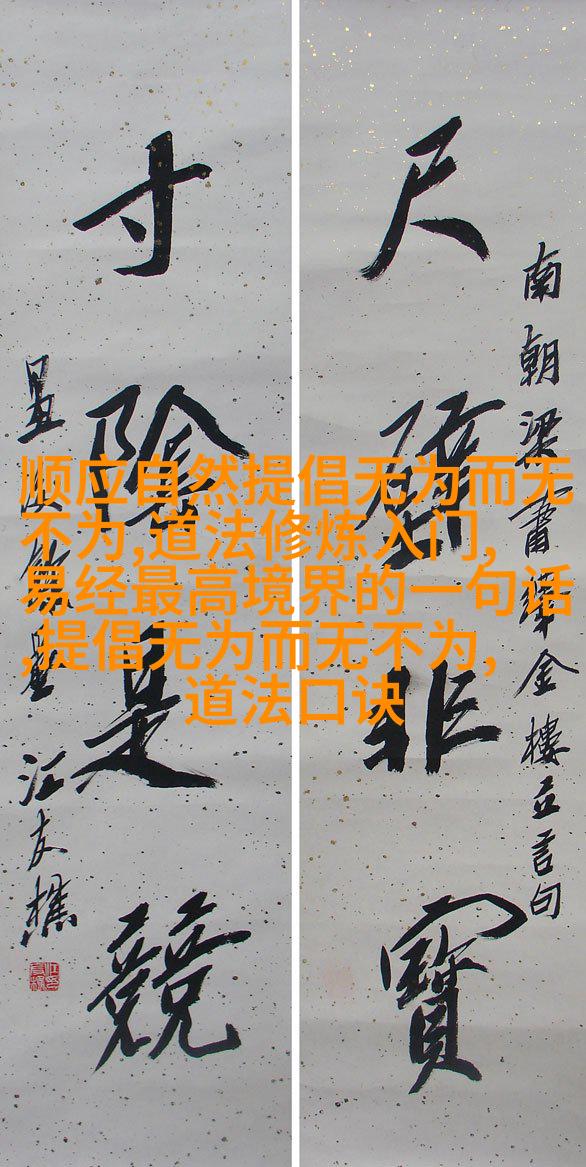 南朝梁蕭繹金樓立言句
尺璧非寶
寸陰是競
汪友樵
顺应自然提倡无为而无
不为,道法修炼入门,
易经最高境界的一句话
,提倡无为而无不为,
道法口诀